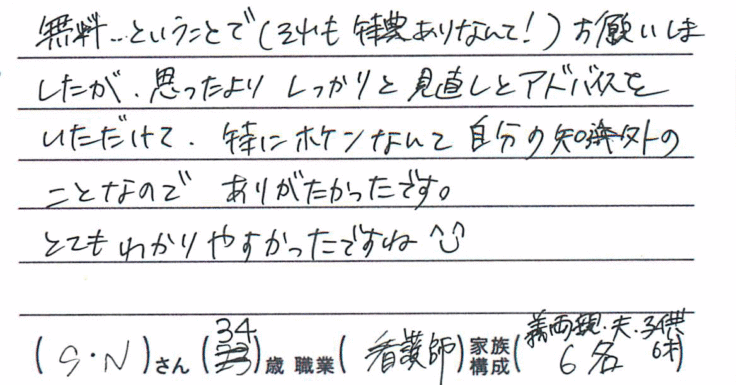 無料…ということで(それも特典ありなんて!)お願いしま
したが、思ったより しっかりと見直しとアドバイスを
いただけて、特にホケンなんて自分の知識外の
ことなので ありがたかったです。
とてもわかりやすかったですね
(S・N)さん (34)歳 職業(看護師)家族構成(義両親・夫・子供 6名 6才)